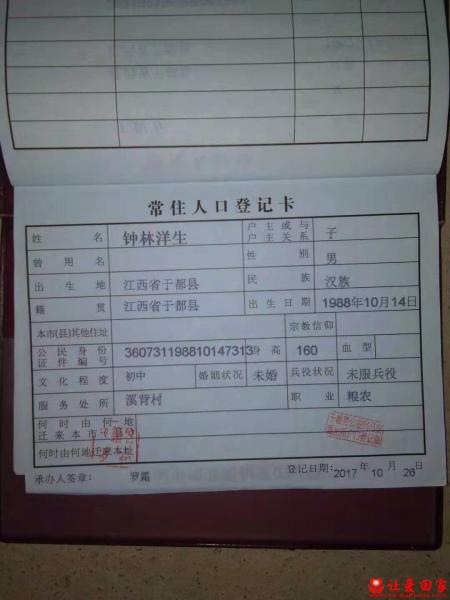 常住人口登记卡
姓 名 钟林洋生 户主或与户主关系 子
曾用名 性别 男
出生地 江西省于都县 民族 汉族
籍贯 江西省于都县 出生日期 1988年10月14日
本市(县)其他住址 宗教信仰
公民身份证件编号 360731198810147313 身高 160 血型
文化程度 初中 婚姻状况 未婚 兵役状况 未服兵役
服务处所 溪背村 职业 粮农
何时由何地迁来本市
何时由何地迁来本址
承办人签章: 罗霜 登记日期:2017年10月26日
让爱回家